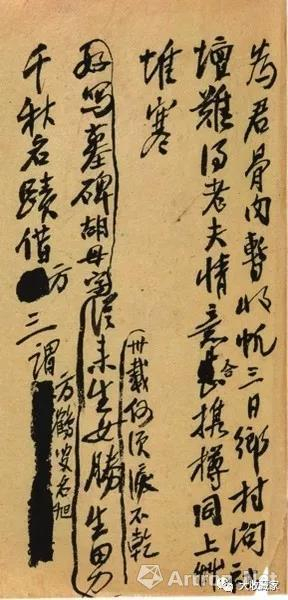 為君骨肉暫收帆三日鄉村問社
壇難得老夫情意合携樽同上草
堆寒
卅載何須淚不乾
好寫墓碑胡母字從來生女勝生男
千秋名蹟借方三謂
方鶴叟名旭
Artron.Net
大收藏家